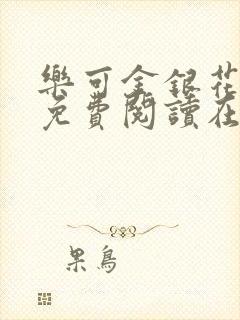 樂可金銀花
免費閱讀在
果鳥